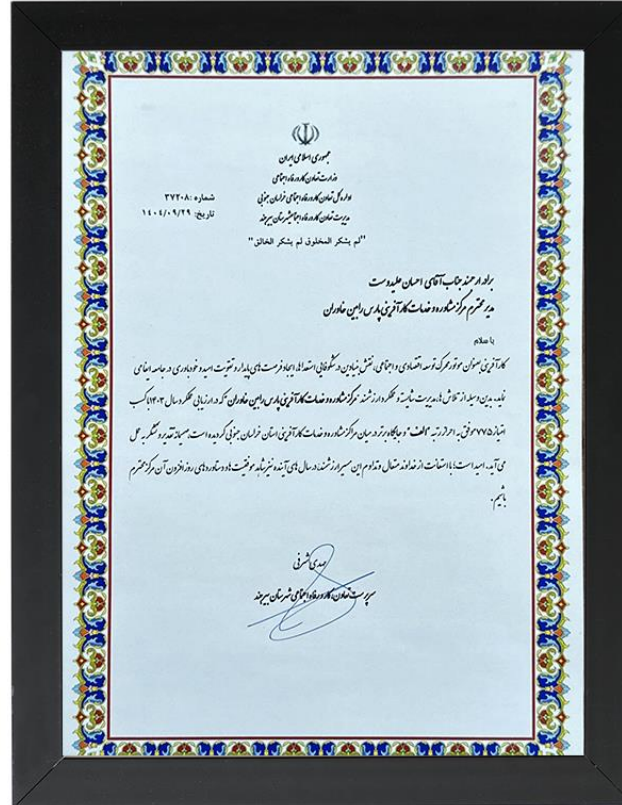 جمهوری اسلامی ایران
وزارت تعاون، کار و رفاه اجتماعی
اداره کل تعاون، کار و رفاه اجتماعی خراسان جنوبی
مدیریت تعاون، کار و رفاه اجتماعی شهرستان بیرجند
شماره: ۳۷۲۰۸
تاریخ: ۱۴۰۴/۰۹/۲۹
"لم یشکر المخلوق لم یشکر الخالق"
برادر ارجمند جناب آقای احسان علیدوست
مدیر محترم مرکز مشاوره و خدمات کارآفرینی پارس رابین خاوران
با سلام
کارآفرینی بعنوان موتور محرک توسعه اقتصادی و اجتماعی، نقش بنیادین در شکوفایی استعدادها، ایجاد فرصت های پایدار و تقویت امید و خودباوری در جامعه ایفا می
نماید. بدین وسیله از تلاش ها، مدیریت شایسته و عملکرد ارزشمند "مرکز مشاوره و خدمات کارآفرینی پارس رابین خاوران" که در ارزیابی عملکرد سال ۱۴۰۳ با کسب
امتیاز ۷۷۵ موفق به احراز رتبه "الف" و جایگاه برتر در میان مراکز مشاوره و خدمات کارآفرینی استان خراسان جنوبی گردیده است، صمیمانه تقدیر و تشکر به عمل
می آید. امید است؛ با استعانت از خداوند متعال و تداوم این مسیر ارزشمند، در سال های آینده نیز شاهد موفقیت ها و دستاوردهای روز افزون آن مرکز محترم
باشیم.
مهدی اشرفی
سرپرست تعاون، کار و رفاه اجتماعی شهرستان بیرجند